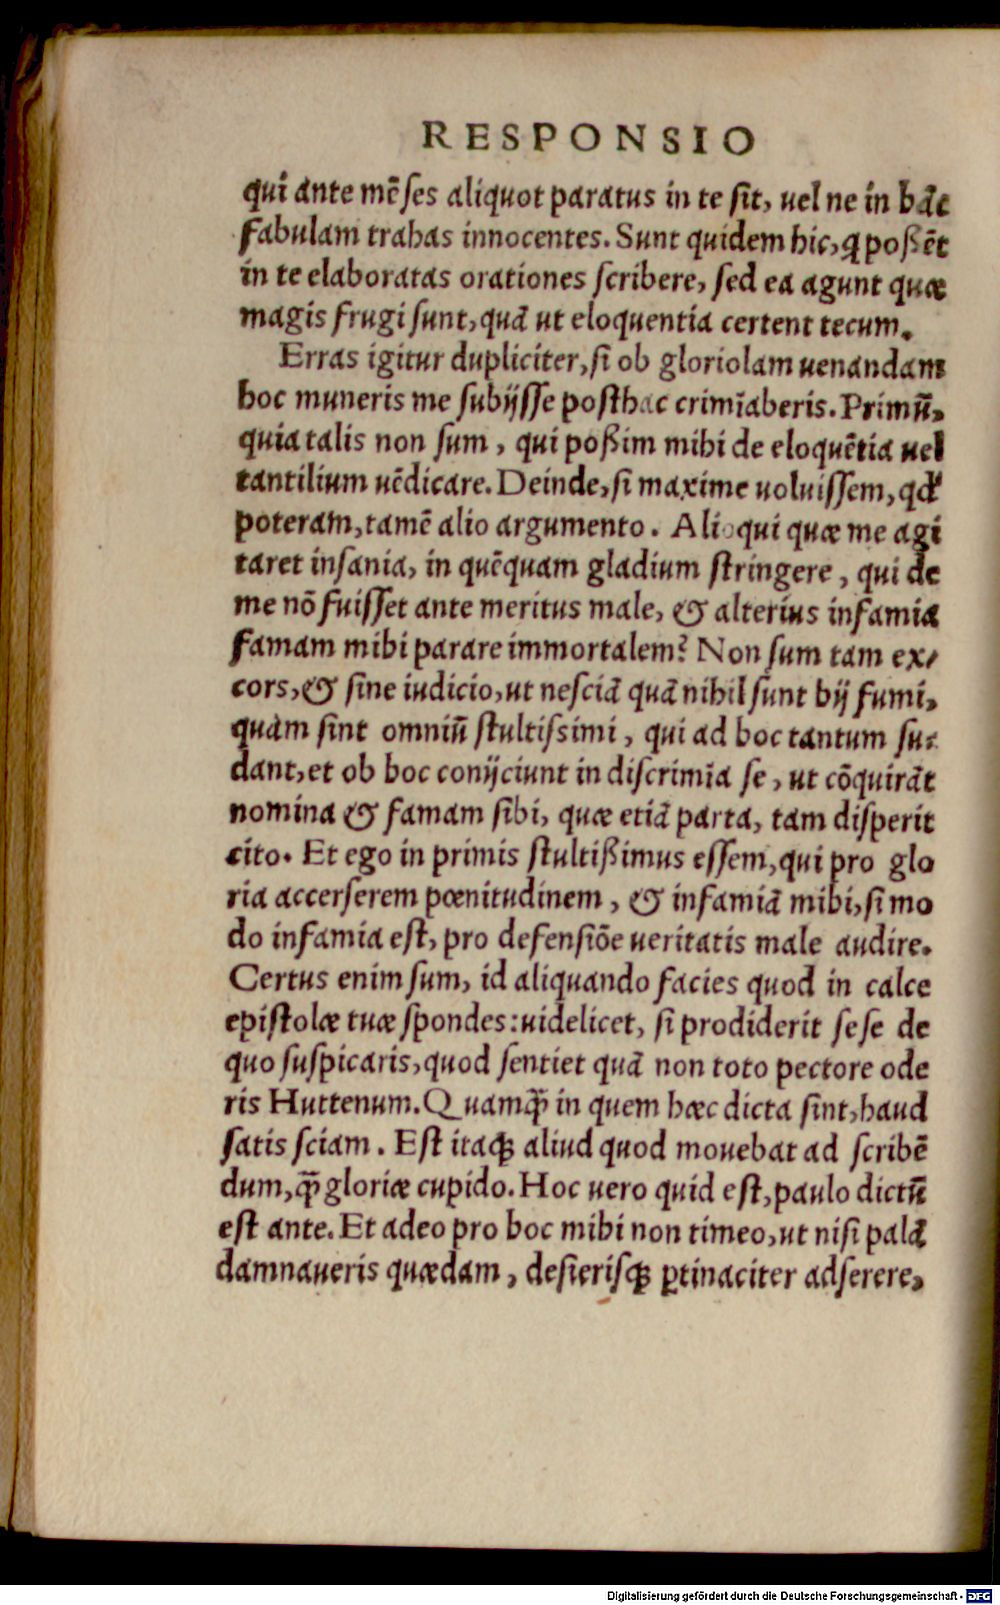 RESPONSIO
qui ante mēſes aliquot paratus in te ſit, uel ne in hāc
fabulam trahas innocentes. Sunt quidem hic, ꝗ poßēt
in te elaboratas orationes ſcribere, ſed ea agunt quæ
magis frugi ſunt, quā ut eloquentia certent tecum.
Erras igitur dupliciter, ſi ob gloriolam uenandam
hoc muneris me ſubijſſe poſthac crimīaberis. Primū,
quia talis non ſum, qui poßim mihi de eloquētia uel
tantilium uēdicare. Deinde, ſi maxime uoluiſſem, qd'
poteram, tamē alio argumento. Alioqui quæ me agi
taret inſania, in quēquam gladium ſtringere, qui de
me nō fuiſſet ante meritus male, & alterius infamia
famam mihi parare immortalem? Non ſum tam ex/
cors, & ſine iudicio, ut neſciā quā nihil ſunt hij fumi,
quàm ſint omniū ſtultiſsimi, qui ad hoc tantum ſu-
dant, et ob hoc conijciunt in diſcrimīa ſe, ut cōquirāt
nomina & famam ſibi, quæ etiā parta, tam diſperit
cito. Et ego in primis ſtultißimus eſſem, qui pro glo
ria accerſerem pœnitudinem, & infamiā mihi, ſi mo
do infamia eſt, pro defenſiōe ueritatis male audire.
Certus enim ſum, id aliquando facies quod in calce
epiſtolæ tuæ ſpondes: uidelicet, ſi prodiderit ſeſe de
quo ſuſpicaris, quod ſentiet quā non toto pectore ode
ris Huttenum. Quamq̄ in quem hæc dicta ſint, haud
ſatis ſciam. Eſt itaq; aliud quod mouebat ad ſcribē
dum, q̄ gloriæ cupido. Hoc uero quid eſt, paulo dictū
eſt ante. Et adeo pro hoc mihi non timeo, ut niſi palā
damnaueris quædam, deſieriſq; ꝑtinaciter adſerere,
Digitalisierung gefördert durch die Deutsche Forschungsgemeinschaft - DFG